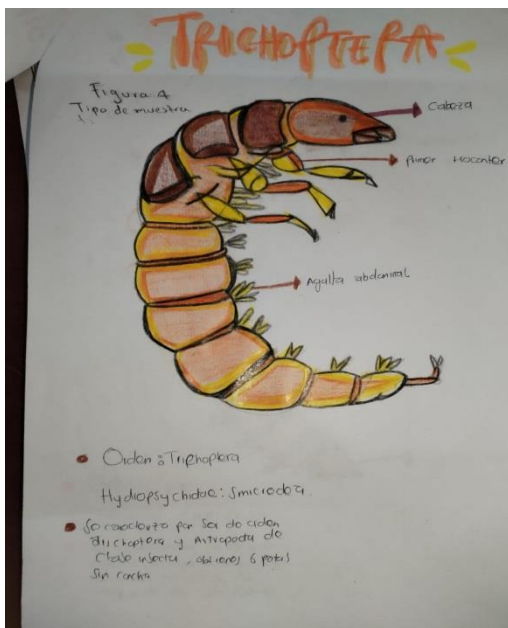 TRICHOPTERA
Figura 4
Tipo de muestra
Cabeza
primer trocanter
Agalla abdominal
Orden: Trichoptera
Hydropsychidae: Smicridea.
Se caracteriza por ser de orden
trichoptera y Artropoda de
Clase insecta, 6 patas
Sin concha